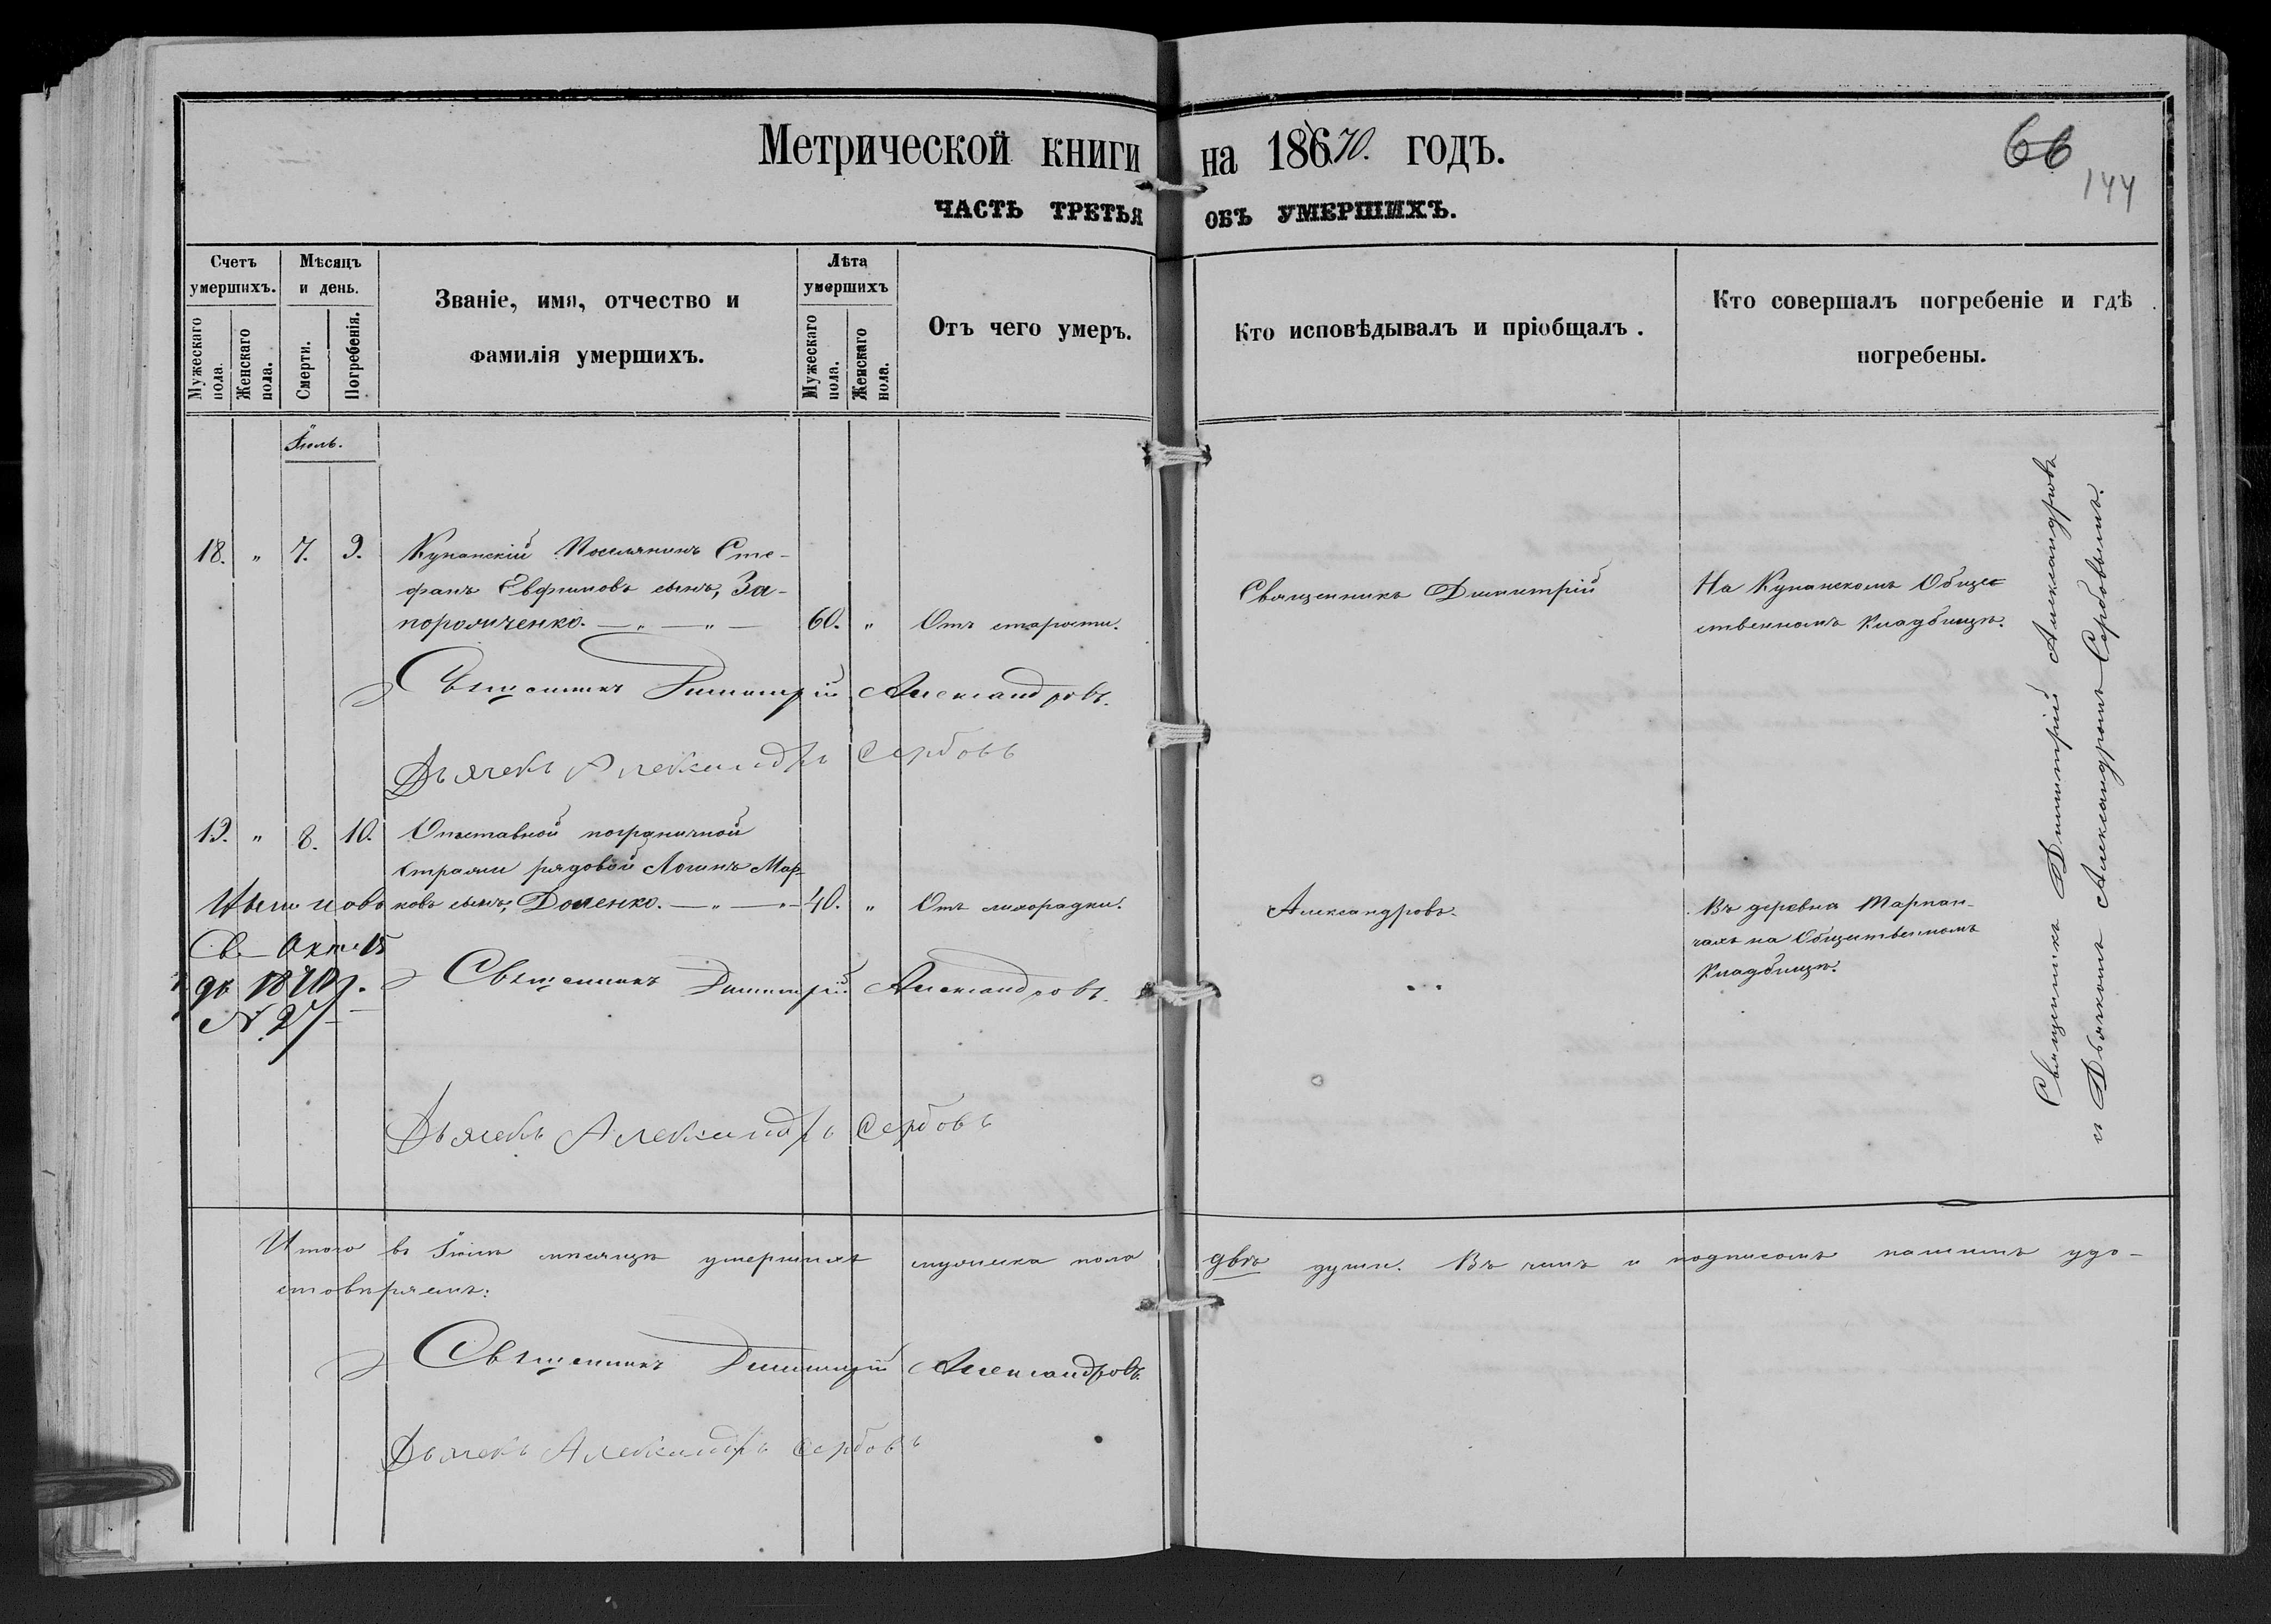 Метрической книги на 18670. годъ.
66
144
ЧАСТЬ ТРЕТЬЯ ОБЪ УМЕРШИХЪ.
Счетъ умершихъ.
Мужескаго пола.
Женскаго пола.
Мѣсяцъ и день.
Смерти.
Погребенія.
Званіе, имя, отчество и
фамилія умершихъ.
Лѣта умершихъ
Мужескаго пола.
Женскаго пола.
Отъ чего умеръ.
Кто исповѣдывалъ и пріобщалъ.
Кто совершалъ погребеніе и гдѣ
погребены.
Іюль.
18. " 7. 9. Купанскій Поселянинъ Сте-
фанъ Евфимовъ сынъ, За-
порожченко. — " — " — 60. " Отъ старости.
Священникъ Димитрій
На Купанскомъ Обще-
ственномъ Кладбищѣ.
Священникъ Димитрій Александровъ.
Дьячекъ Александръ Сербовъ
19. " 8. 10. Отставной пограничной
стражи рядовой Логинъ Мар-
ковъ сынъ, Доленко. — " — 40. " Отъ лихорадки.
Александровъ.
Въ деревнѣ
на Общественномъ
Кладбищѣ.
Св. Окт. 15
1870 г.
№ 27
Священникъ Димитрій Александровъ.
Дьячекъ Александръ Сербовъ
Священникъ Димитрій Александровъ
съ Дьячкомъ Александромъ Сербовымъ.
Итого въ Іюлѣ мѣсяцѣ умершихъ мужеска пола двѣ души. Въ чемъ и подписомъ нашимъ удо-
стовѣряемъ:
Священникъ Димитрій Александровъ.
Дьячекъ Александръ Сербовъ